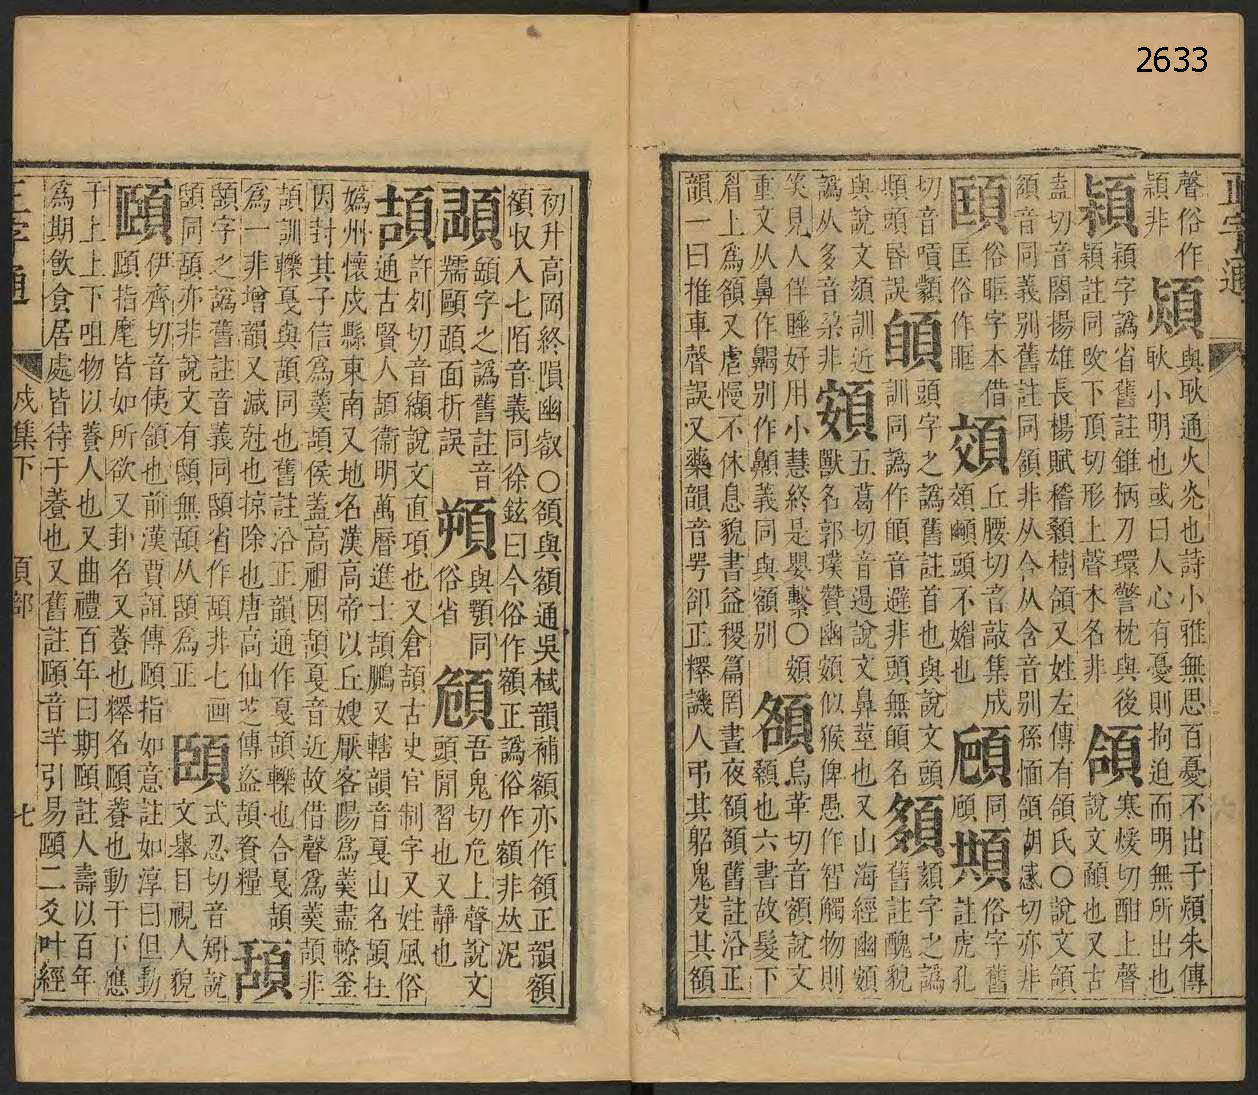 2633
正字通
聲俗作
潁非
熲
與耿通火光也詩小雅無思百憂不出于熲朱傳
耿小明也或曰人心有憂則拘迫而明無所出也
穎
潁字譌省舊註錐柄刀環警枕與後
穎註同改下頂切形上聲木名非
頜
寒煖切酣上聲
說文顄也又古
盍切音閤揚雄長楊賦稽顙樹頜又姓左傳有頜氏〇說文頜
頷音同義别舊註同頷非从合从含音别孫愐頜胡感切亦非
俗眶字本借
匡俗作眶
丘腰切音敲集成
頭不媚也
同俗字舊
註虎孔
切音嗊顙
頭昏誤
頭字之譌舊註首也與說文頭
訓同譌作音避非頭無名
額字之譌
舊註醜貌
與說文頟訓近
譌从多音朶非
五葛切音遏說文鼻莖也又山海經幽頞
獸名郭璞贊幽頞似猴俾愚作智觸物則
笑見人佯睡好用小慧終是嬰繫〇頞
重文从鼻作齃别作义同與額别
額
烏革切音額說文
顙也六書故髮下
眉上爲額又虐慢不休息貌書益稷篇罔晝夜額額舊註沿正
韻一曰推車聲誤又藥韻音咢卻正釋譏人弔其躬鬼芟其額
初升高岡終隕幽叡〇額與額通吳棫韻補額亦作額正韻額
額収入七陌音義同徐鉉曰今俗作額正譌俗作額非从泥
顕
顯字之譌舊註音
面析誤
與顎同
俗省
頠
吾鬼切危上聲說文
頭閒習也又靜也
頡
許列切音纈說文直項也又倉頡古史官制字又姓風俗
通古賢人頡衞明萬曆進士頡鵬又轄韻音戛山名頡在
嬀州懷戎縣東南又地名漢高帝以丘嫂厭客陽爲羹盡轑釜
因封其子信爲羹頡侯蓋高祖因頡戛音近故借聲爲羹頡非
頡訓轢戛與頡同也舊註沿正韻通作戛頡轢也合戛頡
爲一非增韻又減尅也掠除也唐高仙芝傳盜頡資糧
字之譌舊註音義同省作頡非七画
同亦非說文有無从爲正
式忍切音矧說
文舉目視人貌
頤
伊齊切音侇領也前漢賈誼傳頤指如意註如淳曰但動
頤指麾皆如所欲又卦名又養也釋名頤養也動于下應
于上上下咀物以養人也又曲禮百年曰期頤註人壽以百年
爲期飲食居處皆待于養也又舊註頤音羊引易頤二爻叶經
正字通
戌集下
頁部
七